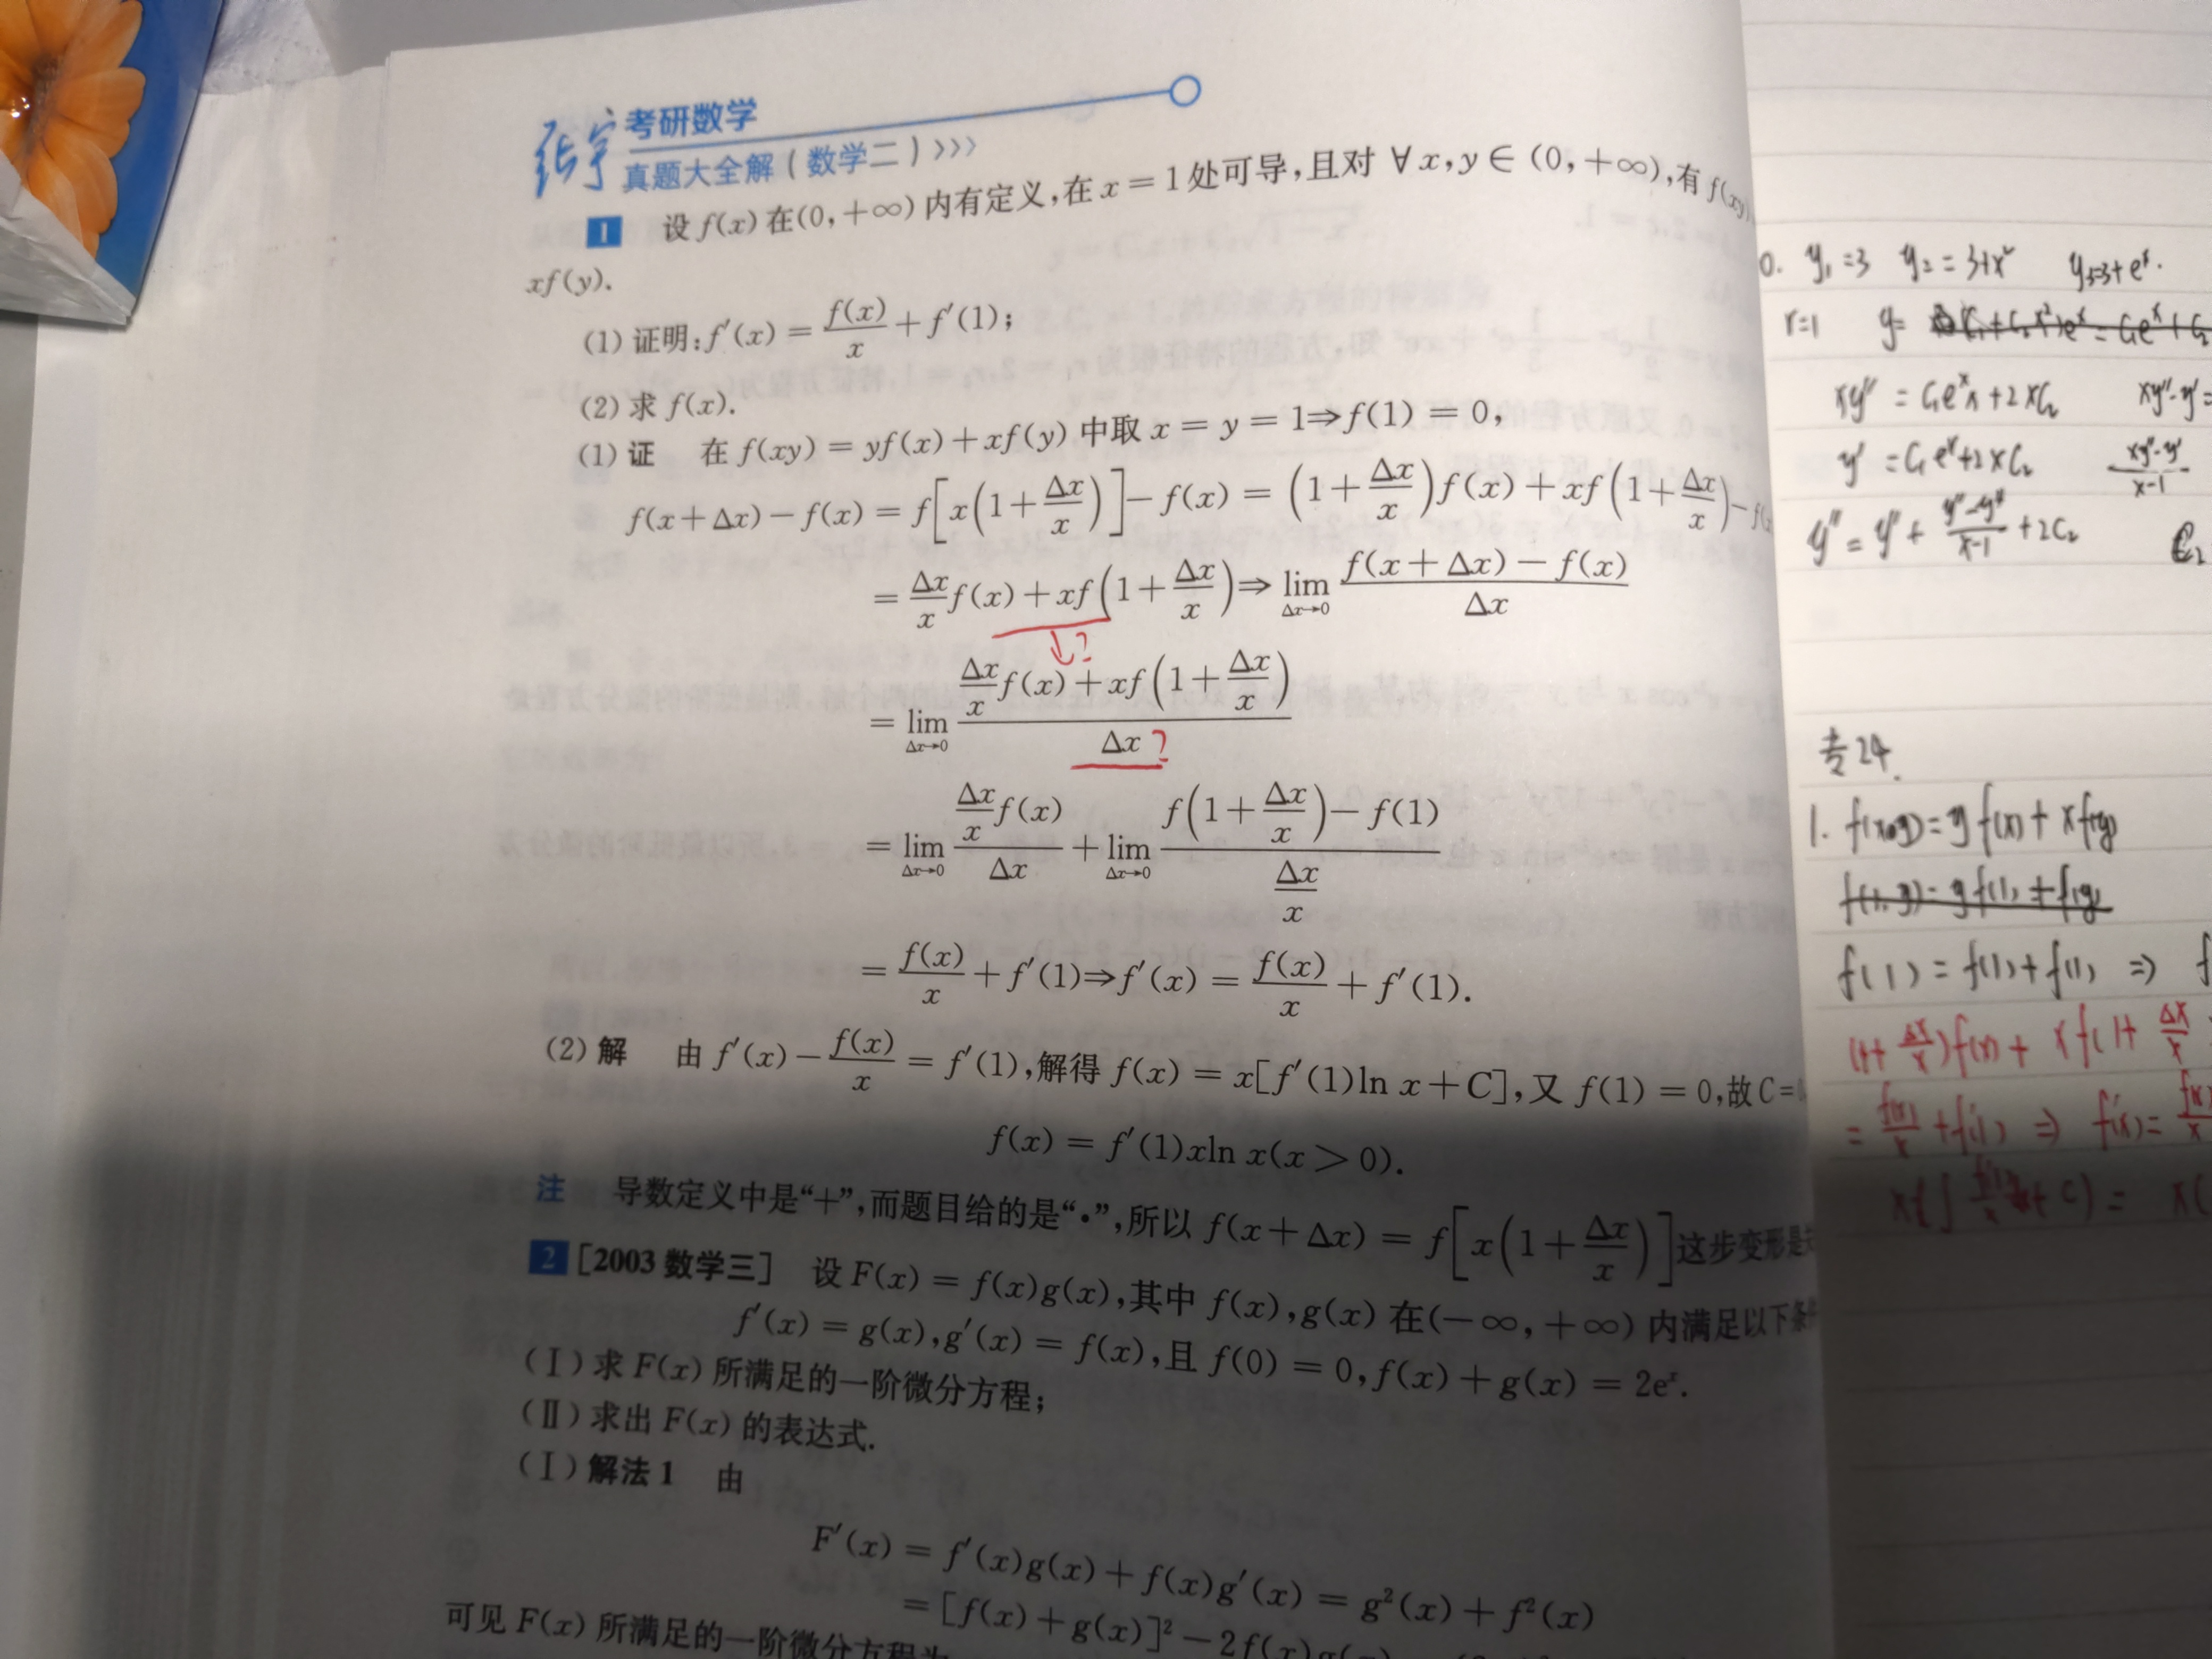 张宇 考研数学
真题大全解(数学二)>>>
1 设 f(x) 在(0,+∞) 内有定义,在 x = 1 处可导,且对 ∀ x,y ∈ (0,+∞),有 f(xy)
xf(y).
(1) 证明:f′(x) = f(x)/x + f′(1);
(2) 求 f(x).
(1) 证 在 f(xy) = yf(x)+xf(y) 中取 x = y = 1⇒f(1) = 0,
f(x+Δx)−f(x) = f[x(1+Δx/x)]−f(x) = (1+Δx/x)f(x)+xf(1+Δx/x)−f(
= Δx/x f(x)+xf(1+Δx/x)⇒ lim Δx→0 (f(x+Δx)−f(x))/Δx
↓?
= lim Δx→0 (Δx/x f(x)+xf(1+Δx/x))/Δx ?
= lim Δx→0 (Δx/x f(x))/Δx + lim Δx→0 (f(1+Δx/x)−f(1))/(Δx/x)
= f(x)/x + f′(1)⇒f′(x) = f(x)/x + f′(1).
(2) 解 由 f′(x)− f(x)/x = f′(1),解得 f(x) = x[f′(1)ln x+C],又 f(1) = 0,故 C=
f(x) = f′(1)xln x(x > 0).
注 导数定义中是“+”,而题目给的是“•”,所以 f(x+Δx) = f[x(1+Δx/x)]这步变形是
2 [2003 数学三] 设 F(x) = f(x)g(x),其中 f(x),g(x) 在(−∞,+∞) 内满足以下条
f′(x) = g(x),g′(x) = f(x),且 f(0) = 0,f(x)+g(x) = 2eˣ.
(Ⅰ) 求 F(x) 所满足的一阶微分方程;
(Ⅱ) 求出 F(x) 的表达式.
(Ⅰ) 解法 1 由
F′(x) = f′(x)g(x)+f(x)g′(x) = g²(x)+f²(x)
= [f(x)+g(x)]²−2f(x)g(
可见 F(x) 所满足的一阶微分方程为
0. y₁=3 y₂=3+x² y₃=3+eˣ.
r=1 y=
xy″ = C₁eˣx+2xC₂ xy″-y′=
y′ = C₁eˣ+2xC₂ (xy″-y′)/(x-1)
y″ = y′ + (y″-y″)/(x-1) +2C₂ C₂
专24.
1. f(xy)=y f(x)+xf(y)
f(1·y)=y f(1)+f(y)
f(1) = f(1)+f(1) ⇒ f
(1+Δx/x)f(x)+ xf(1+Δx/x
= f(x)/x +f′(1) ⇒ f′(x)= f(x)/x